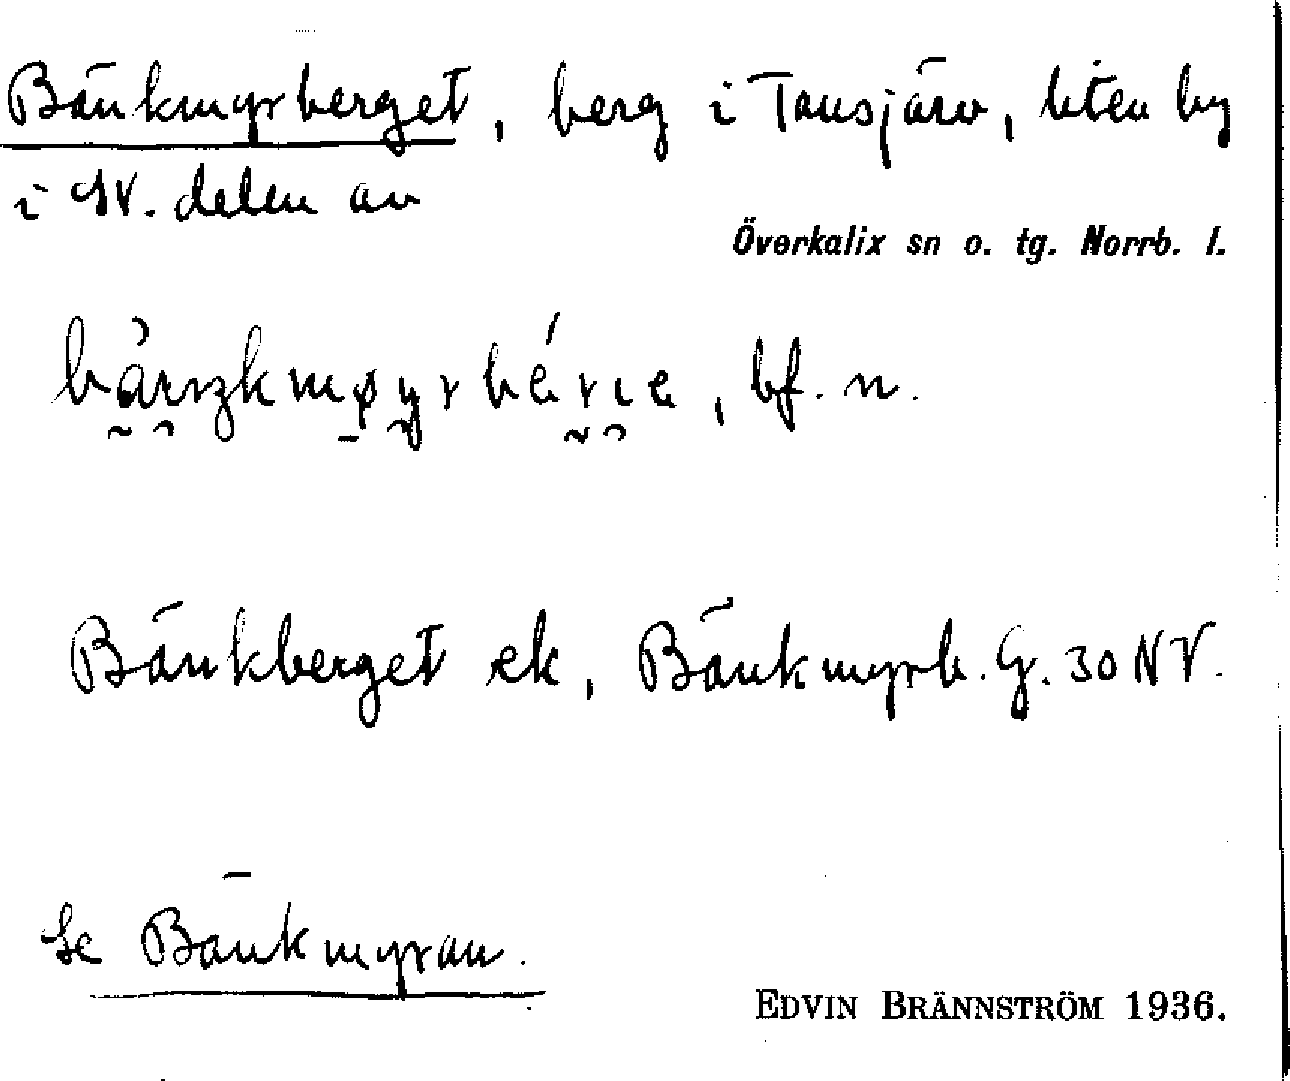 Bänkmyrberget, berg i Tansjärv, liten by
i SV. delen av
Överkalix sn o. tg. Norrb. l.
, bf. n.
Bänkberget ek, Bänkmyrb. G. 30 NV.
Se Bänkmyran.
EDVIN BRÄNNSTRÖM 1936.